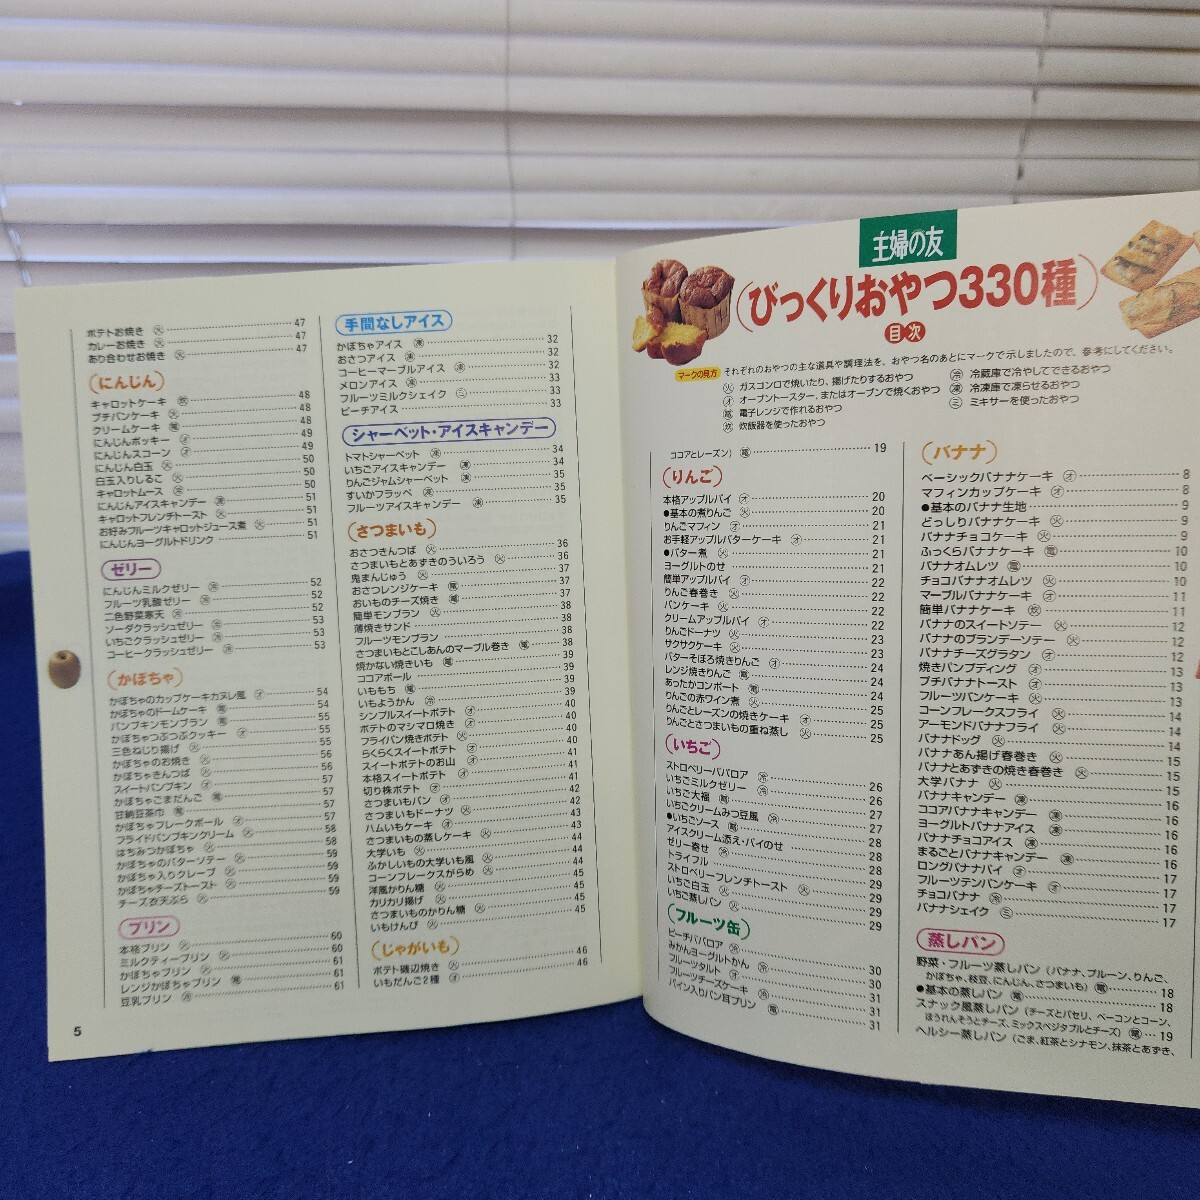 ポテトお焼き 火 47
カレーお焼き 火 47
あり合わせお焼き 火 47
にんじん
キャロットケーキ 炊 48
プチパンケーキ 火 48
クリームケーキ 電 48
にんじんポッキー オ 49
にんじんスコーン オ 49
にんじん白玉 火 50
白玉入りしるこ 火 50
キャロットムース 冷 50
にんじんアイスキャンデー 凍 51
キャロットフレンチトースト 火 51
お好みフルーツキャロットジュース煮 火 51
にんじんヨーグルトドリンク 51
ゼリー
にんじんミルクゼリー 冷 52
フルーツ乳酸ゼリー 冷 52
二色野菜寒天 冷 52
ソーダクラッシュゼリー 冷 53
いちごクラッシュゼリー 冷 53
コーヒークラッシュゼリー 冷 53
かぼちゃ
かぼちゃのカップケーキカヌレ風 オ 54
かぼちゃのドームケーキ 電 54
パンプキンモンブラン 電 55
かぼちゃつぶつぶクッキー オ 55
三色ねじり揚げ 火 55
かぼちゃのお焼き 火 56
かぼちゃきんつば 火 56
スイートパンプキン オ 56
かぼちゃごまだんご 電 57
甘納豆茶巾 電 57
かぼちゃフレークボール オ 57
フライドパンプキンクリーム 火 58
はちみつかぼちゃ 火 58
かぼちゃのバターソテー 火 59
かぼちゃ入りクレープ 火 59
かぼちゃチーズトースト 火 59
チーズ衣天ぷら 火 59
プリン
本格プリン 火 60
ミルクティープリン 火 60
かぼちゃプリン 火 61
レンジかぼちゃプリン 電 61
豆乳プリン 冷 61
5
手間なしアイス
かぼちゃアイス 凍 32
おさつアイス 凍 32
コーヒーマーブルアイス 凍 32
メロンアイス 凍 33
フルーツミルクシェイク ミ 33
ピーチアイス 33
シャーベット・アイスキャンデー
トマトシャーベット 凍 34
いちごアイスキャンデー 凍 34
りんごジャムシャーベット 凍 35
すいかフラッペ 凍 35
フルーツアイスキャンデー 凍 35
さつまいも
おさつきんつば 火 36
さつまいもとあずきのういろう 火 36
鬼まんじゅう 火 37
おさつレンジケーキ 電 37
おいものチーズ焼き 電 37
簡単モンブラン 火 38
薄焼きサンド 38
フルーツモンブラン 38
さつまいもとこしあんのマーブル巻き 電 38
焼かない焼きいも 電 39
ココアボール 39
いももち 電 39
いもようかん 冷 39
シンプルスイートポテト オ 40
ポテトのマシマロ焼き オ 40
フライパン焼きポテト 火 40
らくらくスイートポテト オ 41
スイートポテトのお山 オ 41
本格スイートポテト オ 41
切り株ポテト オ 42
さつまいもパン オ 42
さつまいもドーナツ 火 42
ハムいもケーキ オ 43
さつまいもの蒸しケーキ 火 43
大学いも 火 44
ふかしいもの大学いも風 火 44
コーンフレークスがらめ 火 44
洋風かりん糖 火 45
カリカリ揚げ 火 45
さつまいものかりん糖 火 45
いもけんぴ 火 45
じゃがいも
ポテト磯辺焼き 火 46
いもだんご2種 オ 46
主婦の友
びっくりおやつ330種
目次
マークの見方 それぞれのおやつの主な道具や調理法を、おやつ名のあとにマークで示しましたので、参考にしてください。
火 ガスコンロで焼いたり、揚げたりするおやつ
オ オーブントースター、またはオーブンで焼くおやつ
電 電子レンジで作れるおやつ
炊 炊飯器を使ったおやつ
冷 冷蔵庫で冷やしてできるおやつ
凍 冷凍庫で凍らせるおやつ
ミ ミキサーを使ったおやつ
ココアとレーズン) 電 19
りんご
本格アップルパイ オ 20
●基本の煮りんご 火 20
りんごマフィン オ 21
お手軽アップルバターケーキ オ 21
●バター煮 火 21
ヨーグルトのせ 21
簡単アップルパイ オ 22
りんご春巻き 火 22
パンケーキ 火 22
クリームアップルパイ オ 22
りんごドーナツ 火 23
サクサクケーキ 火 23
バターそぼろ焼きりんご オ 24
レンジ焼きりんご 電 24
あったかコンポート 電 24
りんごの赤ワイン煮 火 25
りんごとレーズンの焼きケーキ オ 25
りんごとさつまいもの重ね蒸し 火 25
いちご
ストロベリーババロア 冷 26
いちごミルクゼリー 冷 26
いちご大福 電 27
いちごクリームみつ豆風 冷 27
●いちごソース 電 28
アイスクリーム添え・パイのせ 28
ゼリー寄せ 冷 28
トライフル 29
ストロベリーフレンチトースト 火 29
いちご白玉 火 29
いちご蒸しパン 火 29
フルーツ缶
ピーチババロア 冷 30
みかんヨーグルトかん 冷 30
フルーツタルト オ 31
フルーツチーズケーキ 冷 31
パイン入りパン耳プリン 電 31
バナナ
ベーシックバナナケーキ オ 8
マフィンカップケーキ オ 8
●基本のバナナ生地 9
どっしりバナナケーキ 火 9
バナナチョコケーキ 火 9
ふっくらバナナケーキ 電 10
バナナオムレツ 電 10
チョコバナナオムレツ 火 10
マーブルバナナケーキ オ 11
簡単バナナケーキ 炊 11
バナナのスイートソテー 火 12
バナナのブランデーソテー 火 12
バナナチーズグラタン オ 12
焼きパンプディング オ 13
プチバナナトースト オ 13
フルーツパンケーキ 火 13
コーンフレークスフライ 火 14
アーモンドバナナフライ 火 14
バナナドッグ 火 14
バナナあん揚げ春巻き 火 15
バナナとあずきの焼き春巻き 火 15
大学バナナ 火 15
バナナキャンデー 凍 16
ココアバナナキャンデー 凍 16
ヨーグルトバナナアイス 凍 16
バナナチョコアイス 凍 16
まるごとバナナキャンデー 凍 16
ロングバナナパイ オ 17
フルーツテンパンケーキ オ 17
チョコバナナ 冷 17
バナナシェイク ミ 17
蒸しパン
野菜・フルーツ蒸しパン (バナナ、プルーン、りんご、
かぼちゃ、枝豆、にんじん、さつまいも) 電 18
●基本の蒸しパン 電 18
スナック風蒸しパン (チーズとパセリ、ベーコンとコーン、
ほうれんそうとチーズ、ミックスベジタブルとチーズ) 電 19
ヘルシー蒸しパン (ごま、紅茶とシナモン、抹茶とあずき、